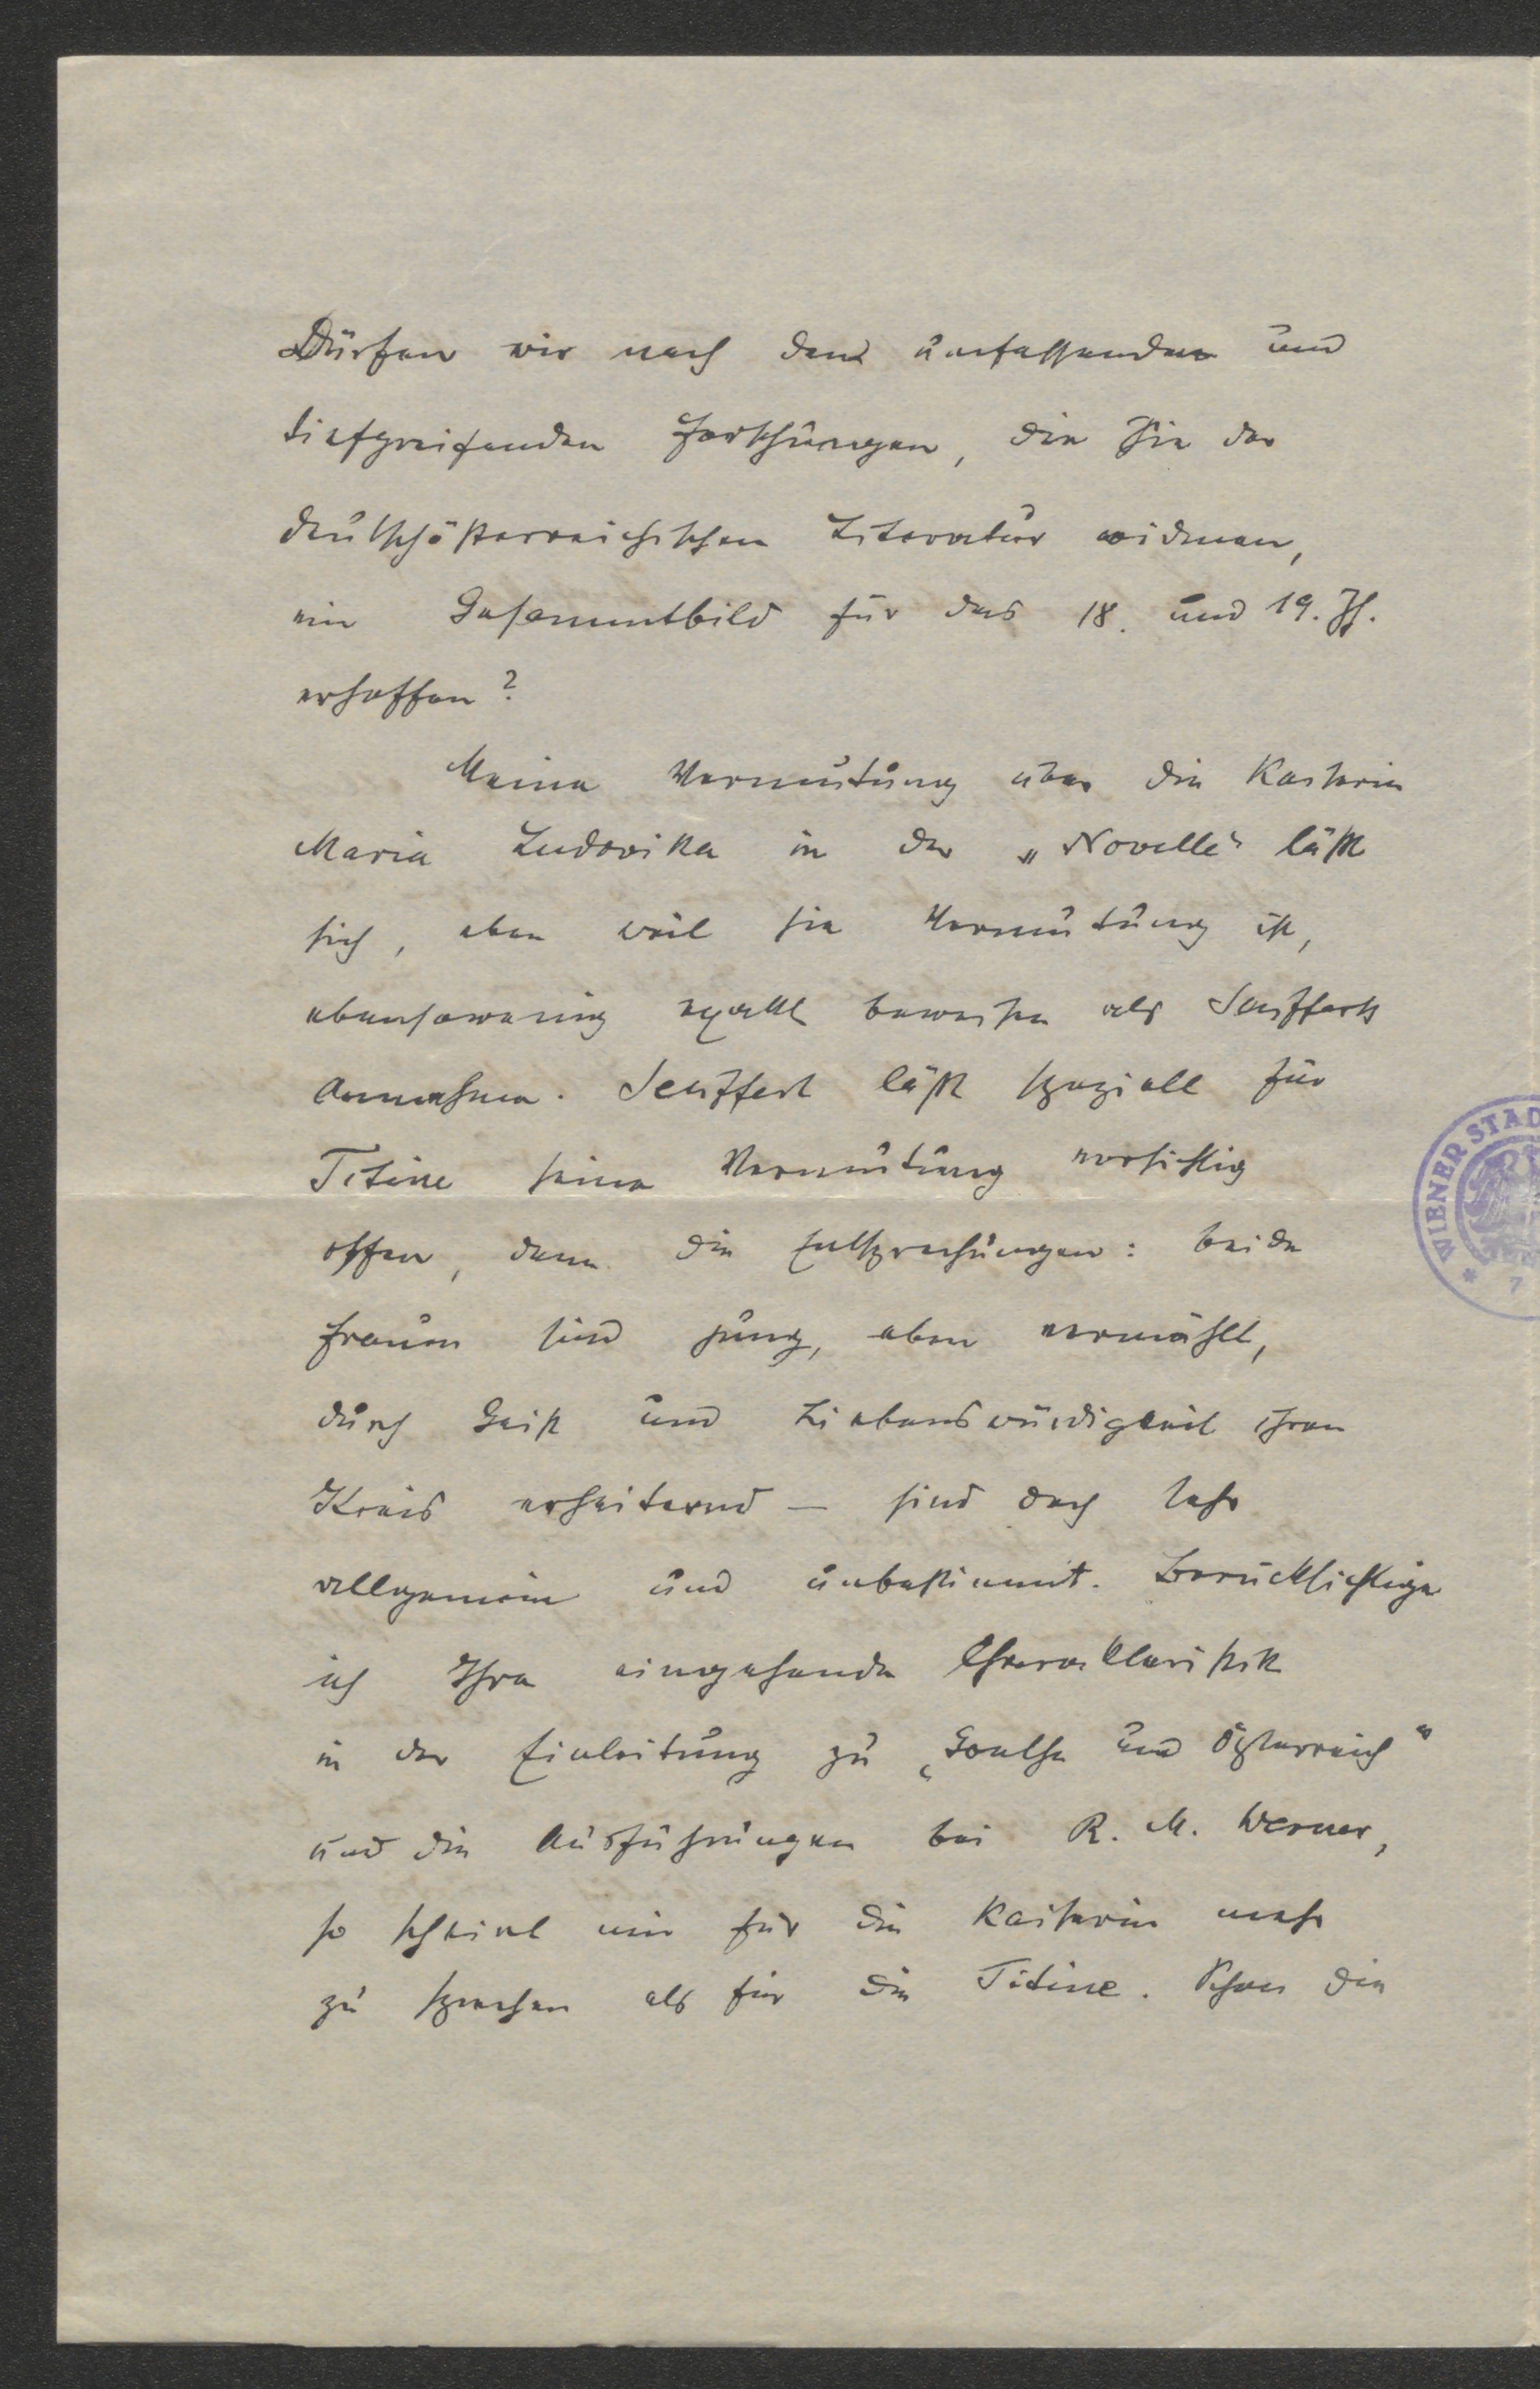 Dürfen wir nach den umfassenden und
tiefgreifenden Forschungen, die Sie der
deutschösterreichischen Literatur widmen,
ein Gesammtbild für das 18. und 19. Jh.
erhoffen?
Meine Vermutung über die Kaiserin
Maria Ludovika in der „Novelle“ läßt
sich, eben weil sie Vermutung ist,
ebensowenig exakt beweisen als Seufferts
Annahmen. Seuffert läßt speziell für
Titine seine Vermutung vorsichtig
offen, denn die Entsprechungen: beide
Frauen sind jung, eben vermählt,
durch Geist und Liebenswürdigkeit ihren
Kreis erheiternd – sind doch sehr
allgemein und unbestimmt. Berücksichtige
ich Ihre eingehende Charakteristik
in der Einleitung zu „Goethe und Österreich“
und die Ausführungen bei R. M. Werner,
so scheint mir für die Kaiserin mehr
zu sprechen als für die Titine. Schon die
WIENER STAD
* 7